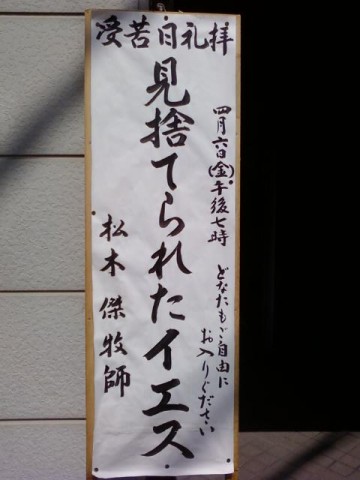 受苦日礼拝
四月六日(金)午後七時
どなたもご自由に
お入りください
見捨てられたイエス
松木 傑牧師